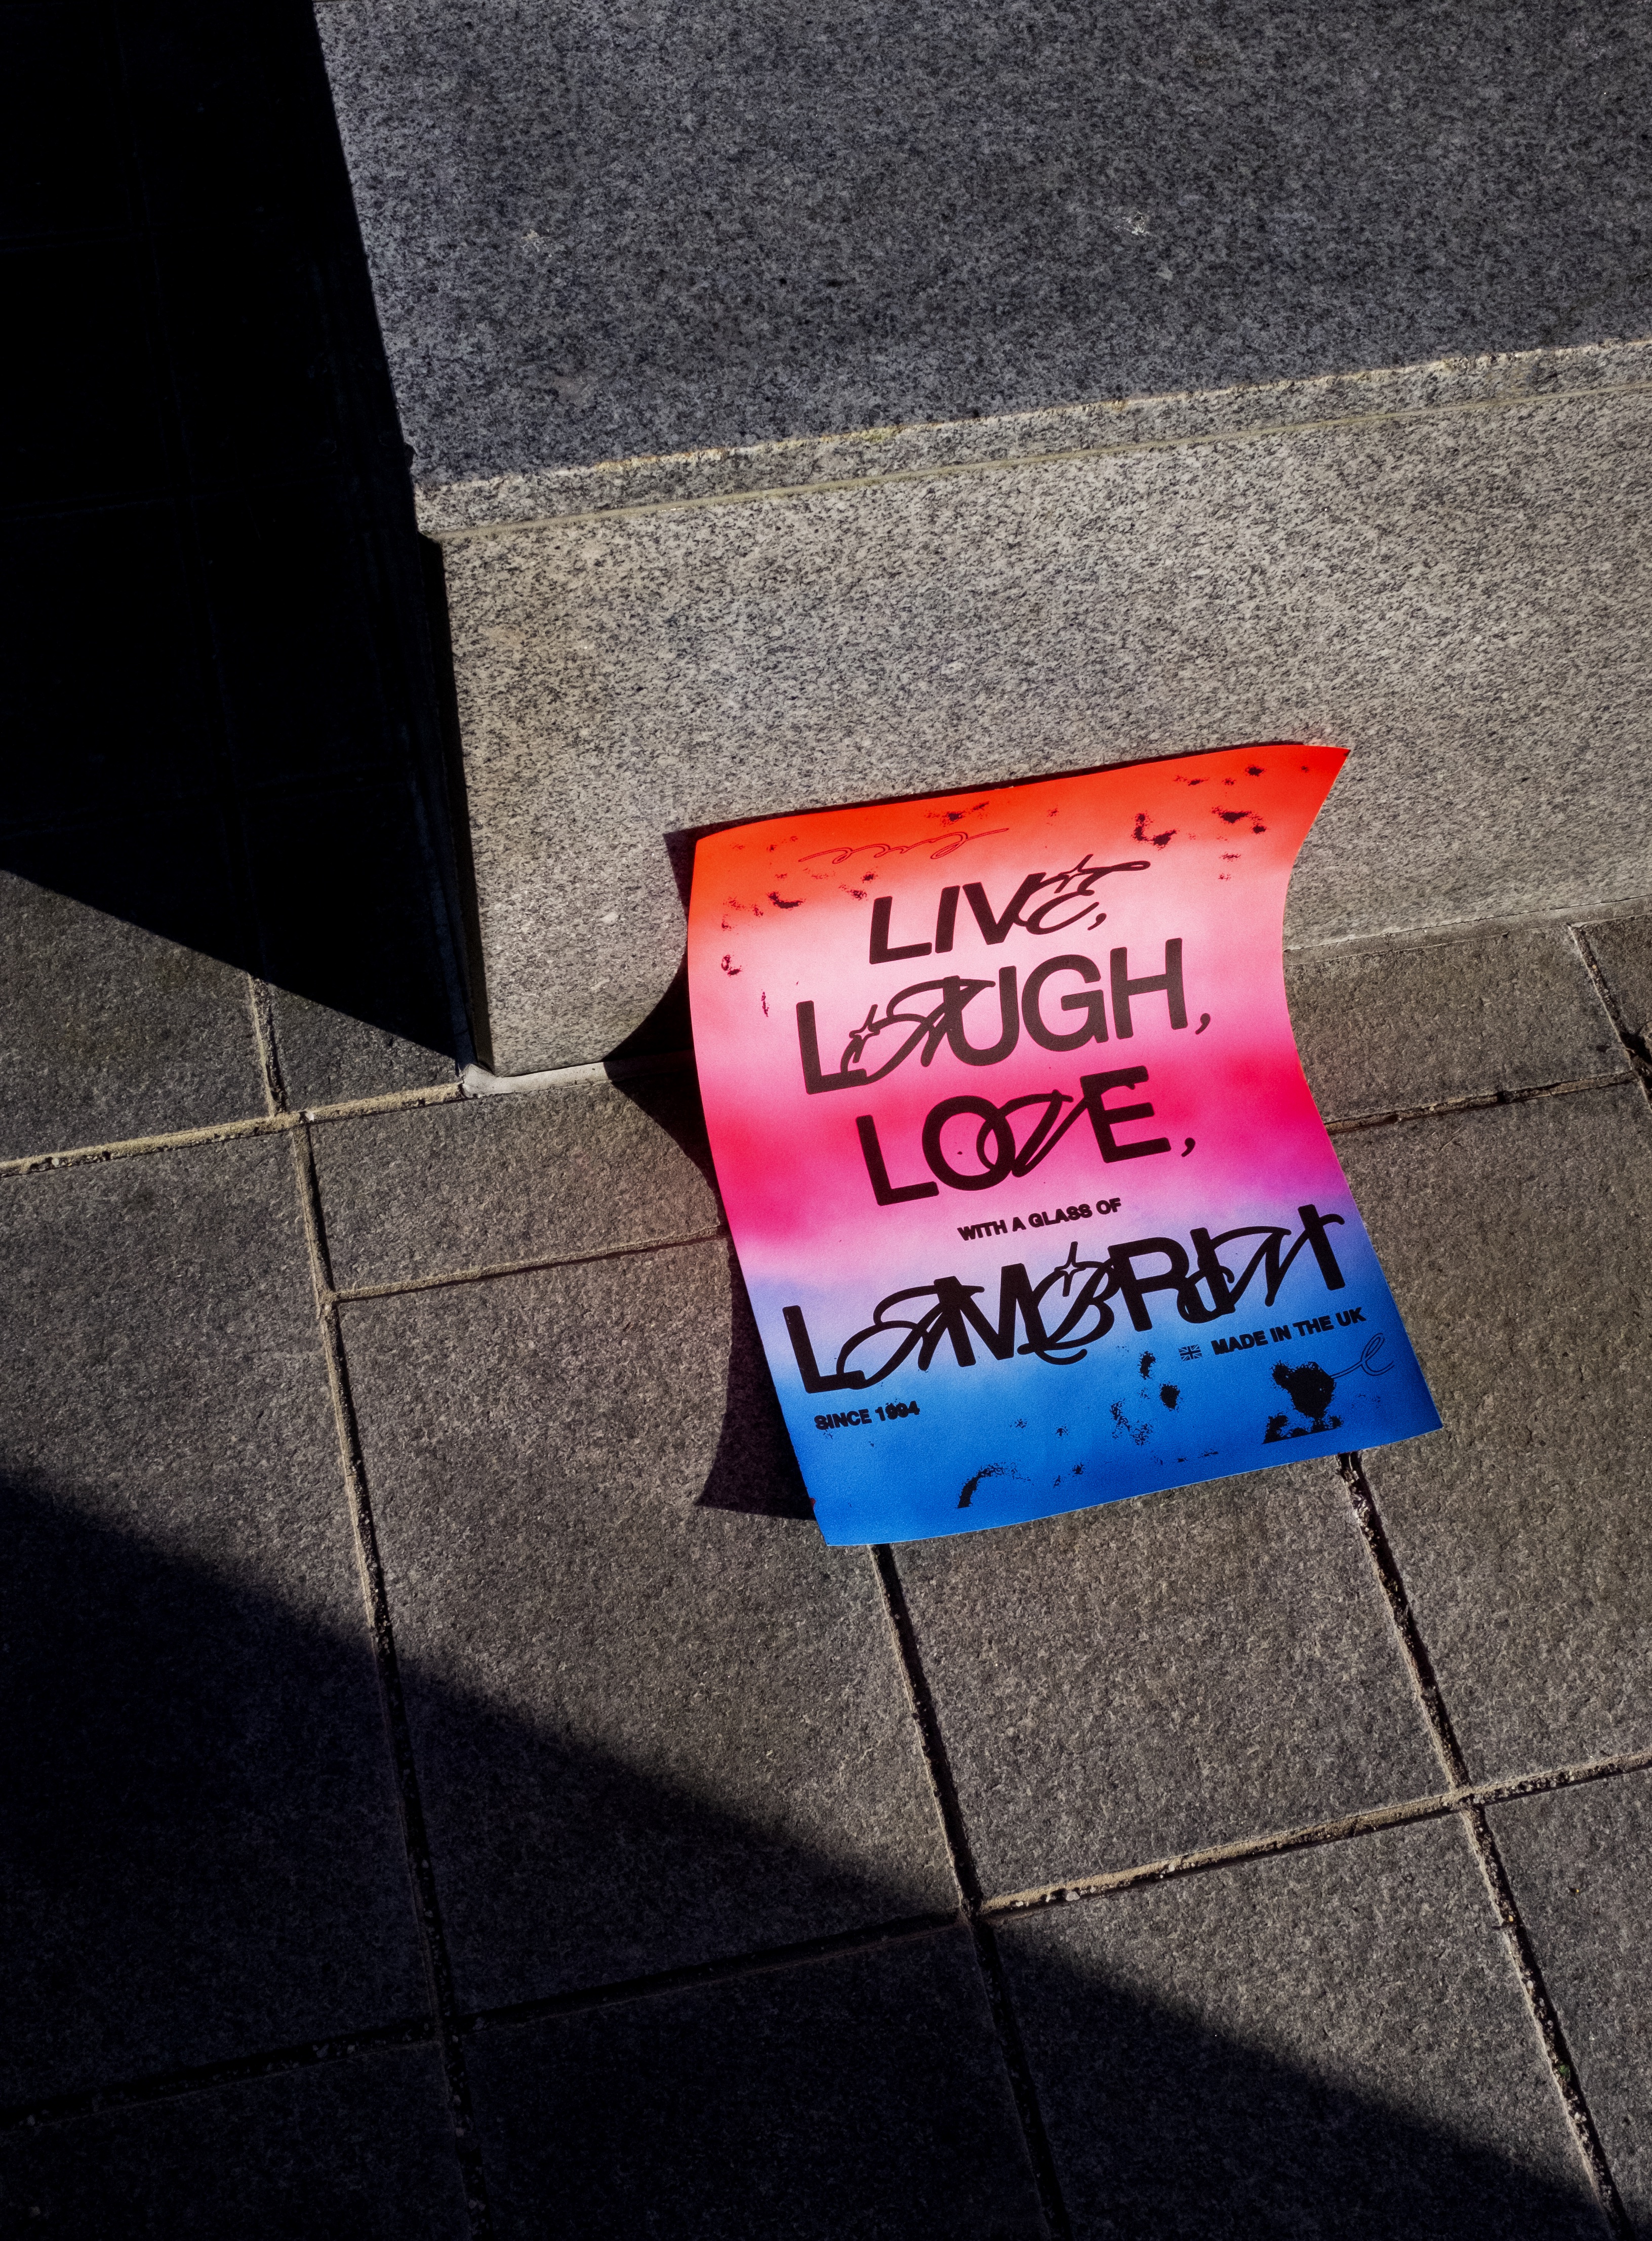 LIVE,
LAUGH,
LOVE,
WITH A GLASS OF
LAMBRINI
MADE IN THE UK
SINCE 1994